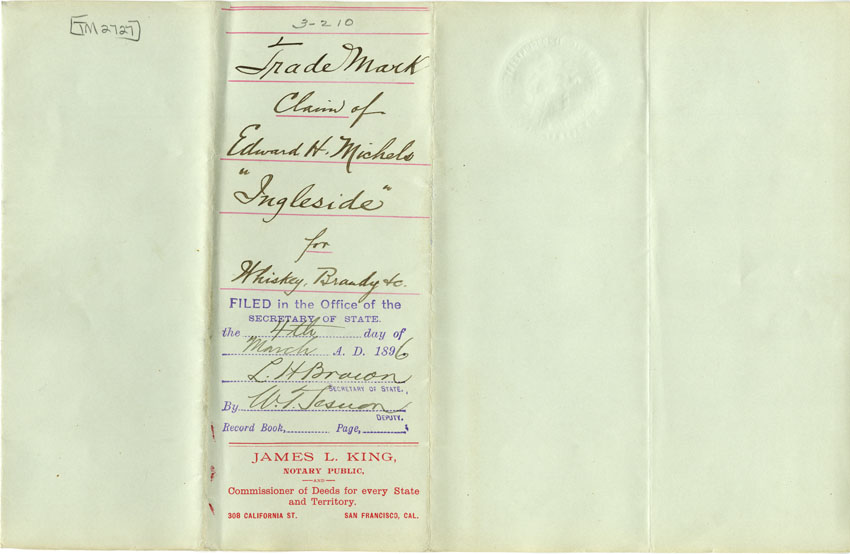 TM2727
3-210
Trade Mark
Claim of
Edward H. Michels
"Ingleside"
for
Whiskey, Brandy &c.
FILED in the Office of the
SECRETARY OF STATE.
the 4th day of
March A. D. 1896
L. H. Brown
SECRETARY OF STATE.
By W. T.
DEPUTY.
Record Book, Page,
JAMES L. KING,
NOTARY PUBLIC,
AND
Commissioner of Deeds for every State
and Territory.
308 CALIFORNIA ST. SAN FRANCISCO, CAL.